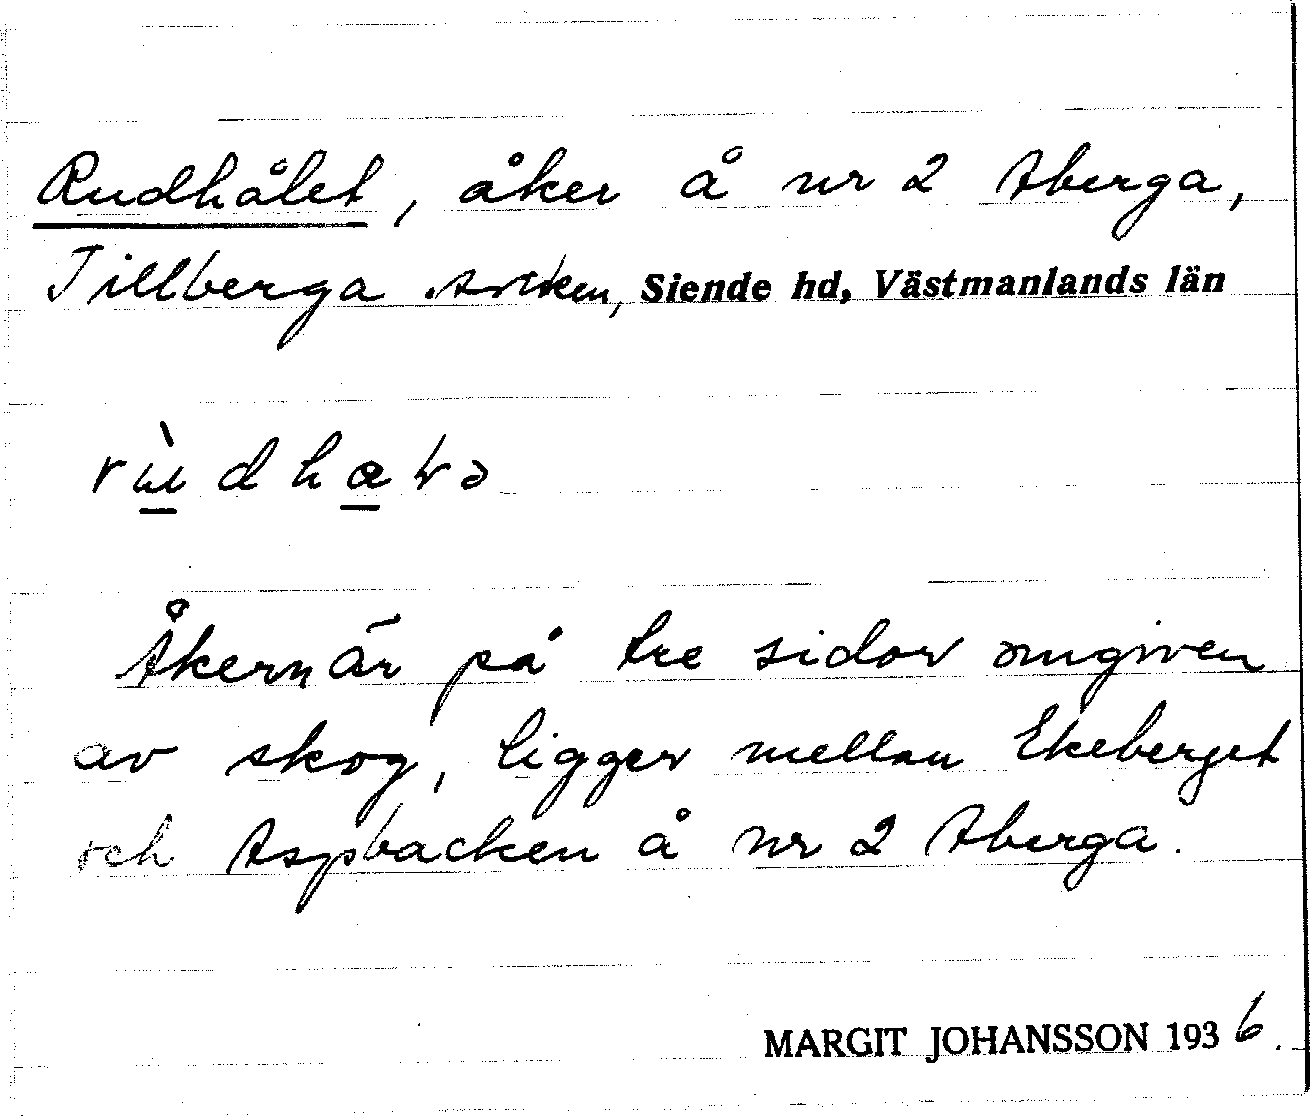 Rudhålet, åker å nr 2 Aberga,
Tillberga socken, Siende hd, Västmanlands län
rùdhaƚə
Åkern är på tre sidor omgiven
av skog, ligger mellan Ekeberget
och Aspbacken å nr 2 Aberga.
MARGIT JOHANSSON 1936.